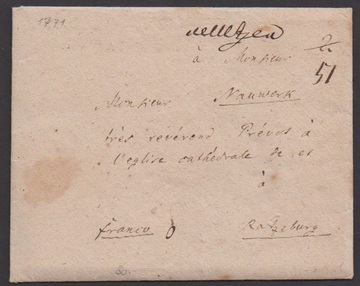 1771
à Monsieur
2
51
Monsieur Nauwerk
très revérend Prévot à
l'eglise cathédrale de et
à
franco Ratzeburg